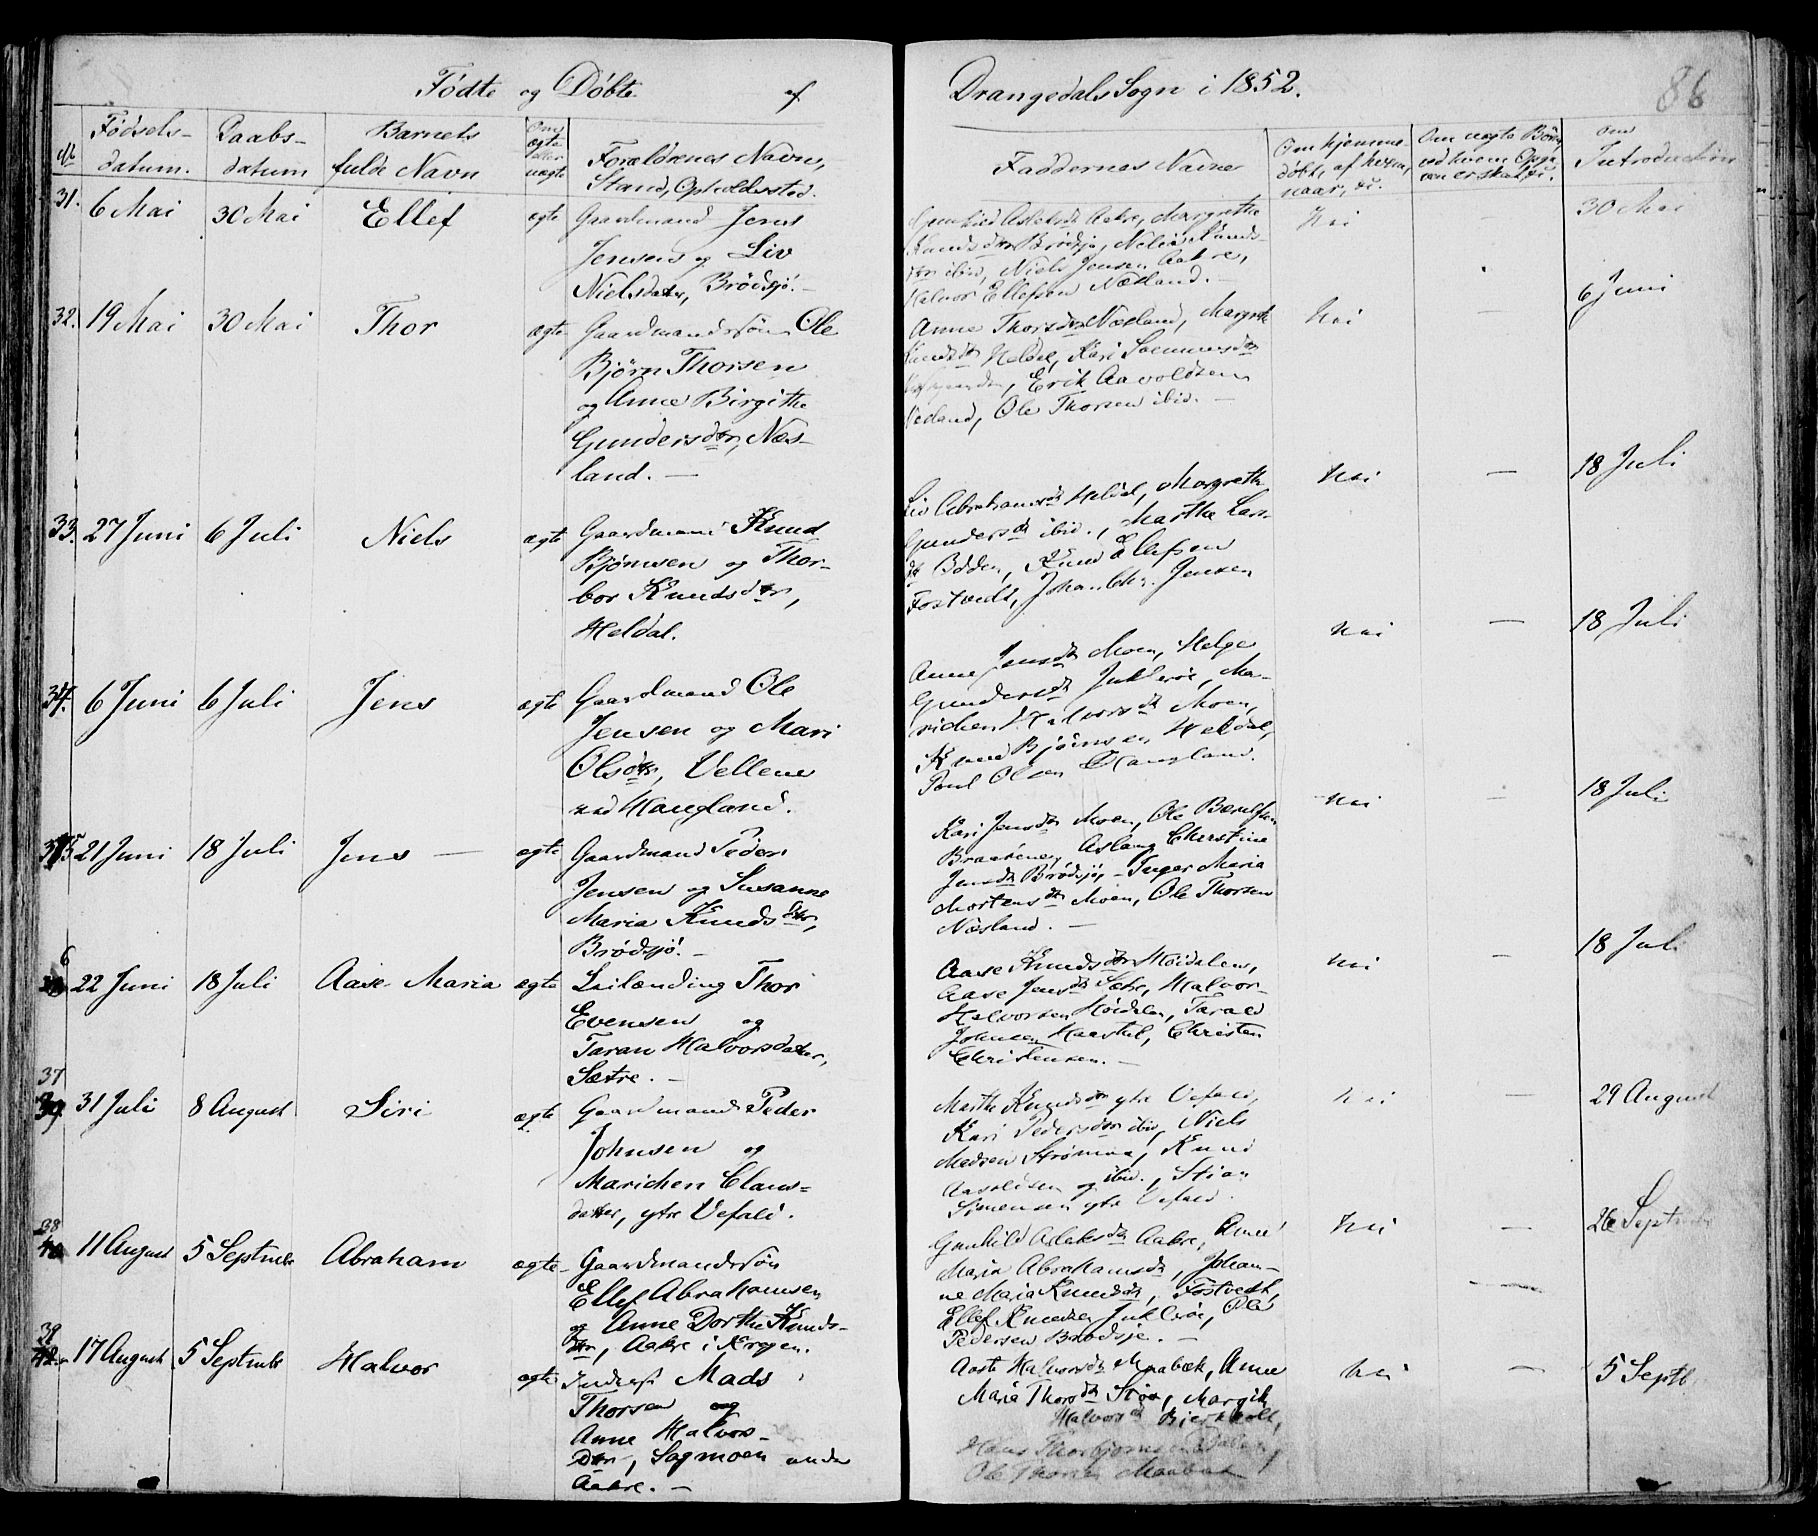 Fødte og Døbte af Drangedals Sogn i 1852.
86
№
Fødsels-
datum.
Daabs-
datum
Barnets
fulde Navn
Om
ægte
eller
uægte
Forældrenes Navn,
Stand, Opholdssted.
Faddernes Navne
Om hjemme-
døbt, af hvem,
naar, &c.
Om uægte Børn,
ved hvem Opga-
ven er skal, &c.
om
Introduction
31. 6 Mai 30 Mai Ellef ægte Gaardmand Jens
Jensen og Liv
Nielsdatter, Brødsjø. -
Gunhild Aslaksdtr Aakre, Margrethe
Knudsdtr Brødsjø, Knuds-
dtr ibid, Niels Jensen Aakre,
Halvor Ellefsen Næsland. -
Nei - 30 Mai
32. 19 Mai 30 Mai Thor ægte Gaardmandssøn Ole
Bjørn Thorsen
og Anne Birgithe
Gundersdtr, Næs-
land. -
Anne Thorsdtr Næsland, Margreth
Heldal, Kari
Erik Aavoldsen
Ole Thorsen ibid. -
Nei - 6 Juni
33. 27 Juni 6 Juli Niels ægte Gaardmand Knud
Bjørnsen og Thor-
bor Knudsdtr,
Heldal.
Liv Abrahamsdtr Heldal, Margrethe
Gundersdtr ibid., Marthe Lars-
dtr Bødden, Knud Ellefsen
Fostvedt, Johan Chr. Jensen
Nei - 18 Juli
34. 6 Juni 6 Juli Jens ægte Gaardmand Ole
Jensen og Mari
Olsdtr, Vellene
ved Haugland.
Anne Jensdtr Moen, Helge
Gundersdtr Juklerøe, Ma-
richen Halvorsdtr Moen,
Knud Bjørnsen Heldal,
Poul Olsen Haugland.
Nei - 18 Juli
35 21 Juni 18 Juli Jens - ægte Gaardmand Peder
Jensen og Susanne
Maria Knudsdtr,
Brødsjø. -
Kari Jensdtr Moen, Ole
Braatene, Aslaug Cherstine
Jensdtr Brødsjø - Inger Maria
Mortensdtr Moen, Ole Thorsen
Næsland. -
Nei - 18 Juli
6
22 Juni 18 Juli Aase Maria ægte Leilænding Thor
Evensen og
Taran Halvorsdatter,
Sætre. -
Aase Knudsdtr Høidalen,
Aase Jensdtr Sætre, Halvor
Halvorsen Høidalen, Tarald
Johnsen Christen
Christensen. -
Nei - 18 Juli
37
39. 31 Juli 8 August Siri ægte Gaardmand Peder
Johnsen og
Marichen Claus-
datter, ytre Vefald.
Marthe Knudsdtr ytre Vefald,
Kari Pedersdtr ibid, Niels
Madsen Strømmo, Knud
Aavoldsen og ibid., Stian
Simensen ytre Vefald.
Nei - 29 August
38
40 11 August 5 Septmbr Abraham ægte Gaardmandssøn
Ellef Abrahamsen
og Anne Dorthe Knuds-
dtr, Aakre i Krogen.
Gunhild Aslaksdtr Aakre, Anne
Maria Abrahamsdtr, Johan-
ne Maria Knudsdtr, Fostvedt,
Ellef Knudsen Juklerøe, Ole
Pedersen Brødsje. -
Nei - 26 Septmbr
39
17 August 5 Septmbr Halvor ægte Inderst Mads
Thorsen og
Anne Halvors-
Dtr, Sagmoen under
Aakre. -
Aaste Halvorsdtr Maabæk, Anne
Maria Thorsdtr Margith
Halvorsdtr
Hans Thorbjørnsen
Ole Thorsen
Nei - 5 Septb.